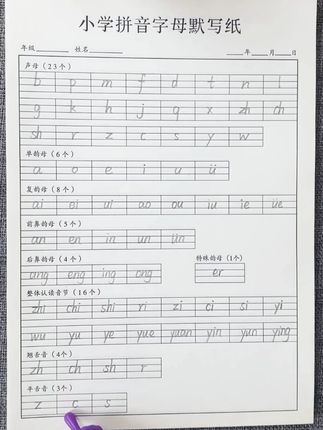 小学拼音字母默写纸
年级 姓名 年 月 日
声母(23个)
b p m f d t n l
g k h j q x zh ch
sh r z c s y w
单韵母(6个)
a o e i u ü
复韵母(8个)
ai ei ui ao ou iu ie üe
前鼻韵母(5个)
an en in un ün
后鼻韵母(4个) 特殊韵母(1个)
ang eng ing ong er
整体认读音节(16个)
zhi chi shi ri zi ci si yi
wu yu ye yue yuan yin yun ying
翘舌音(4个)
zh ch sh r
平舌音(3个)
z c s